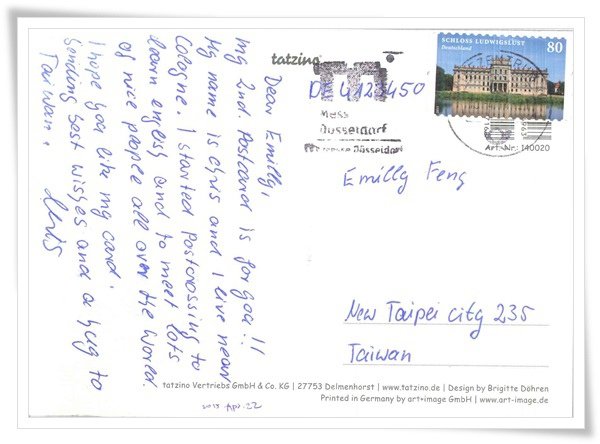 tatzino
SCHLOSS LUDWIGSLUST
Deutschland
80
DE 4123450
Düsseldorf
Art.-Nr.: 140020
Dear Emilly,
my 2nd. Postcard is for you!!
My name is chris and I live near
Cologne. I started Postcrossing to
learn englisch and to meet lots
of nice people all over the World.
I hope you like my card.
Sending best wishes and a hug to
Taiwan.
Chris
Emilly Feng
New Taipei city 235
Taiwan
tatzino Vertriebs GmbH & Co. KG | 27753 Delmenhorst | www.tatzino.de | Design by Brigitte Döhren
Printed in Germany by art+image GmbH | www.art-image.de
2015 Apr. 22